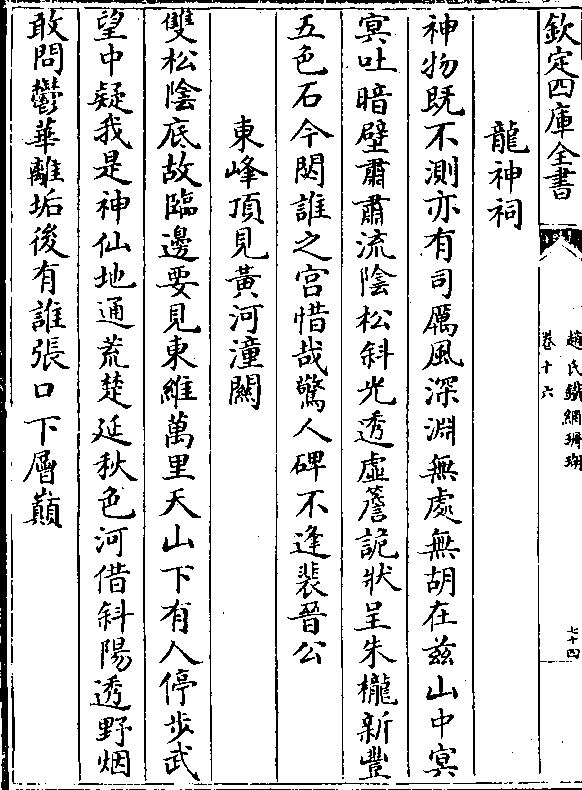 欽定四庫全書
趙氏鐵網珊瑚
卷十六
七十四
龍神祠
神物既不測亦有司厲風深淵無處無胡在兹山中冥
冥吐暗壁肅肅流陰松斜光透虛簷詭狀呈朱櫳新豐
五色石今閟誰之宫惜哉驚人碑不逢裴晉公
東峰頂見黄河潼關
雙松陰底故臨邊要見東維萬里天山下有人停步武
望中疑我是神仙地通荒楚延秋色河借斜陽透野烟
敢問鬱華離垢後有誰張口下層巔